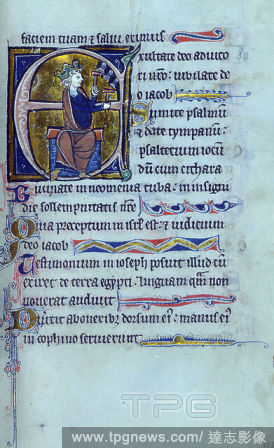 faciem tuam & salui erimus
Exultate deo adiuto
ri nr̄o: iubilate de
o iacob
Sumite psalmū
& date tympanū:
psalterium iocū
dū cum cithara
Buccinate in neomenia tuba: in insigni
die sollempnitatis nr̄e
Quia preceptum in isr̄l est: & iudicium
deo iacob
Testimonium in ioseph posuit illud cū
exiret de terra egypti: linguam quā non
nouerat audiuit
Diuertit ab oneribꝫ dorsum eiꝰ: manus eiꝰ
in cophino seruierunt
TPG
www.tpgnews.com/達志影像